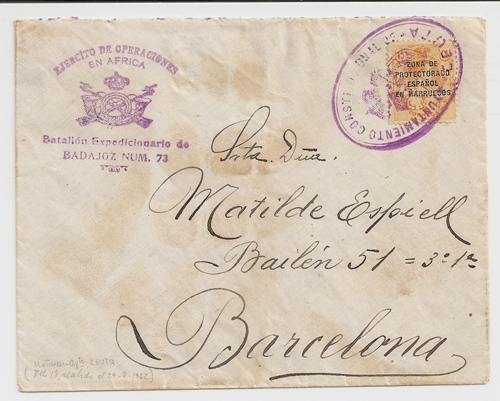 EJERCITO DE OPERACIONES
EN AFRICA
Batallón Expedicionario de
BADAJOZ NUM. 73
AYUNTAMIENTO CONST
CEUTA
ZONA DE
PROTECTORADO
ESPAÑOL
EN MARRUECOS
Srta. Dña.
Matilde Espiell
Bailén 51 = 3º 1ª
Barcelona
CEUTA